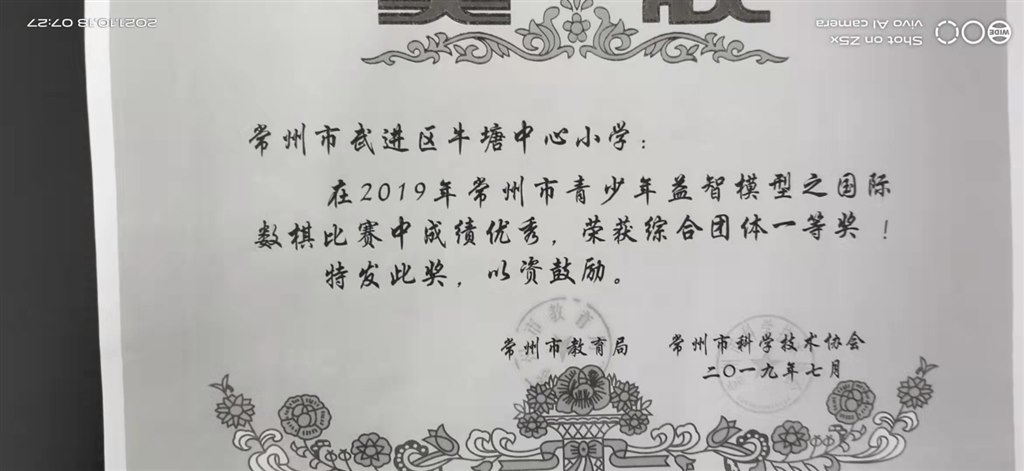 常州市武进区牛塘中心小学：
在2019年常州市青少年益智模型之国际
数棋比赛中成绩优秀，荣获综合团体一等奖！
特发此奖，以资鼓励。
常州市教育局 常州市科学技术协会
二〇一九年七月
2021.10.13 07:27
Shot on Z5x
vivo AI camera
WIDE